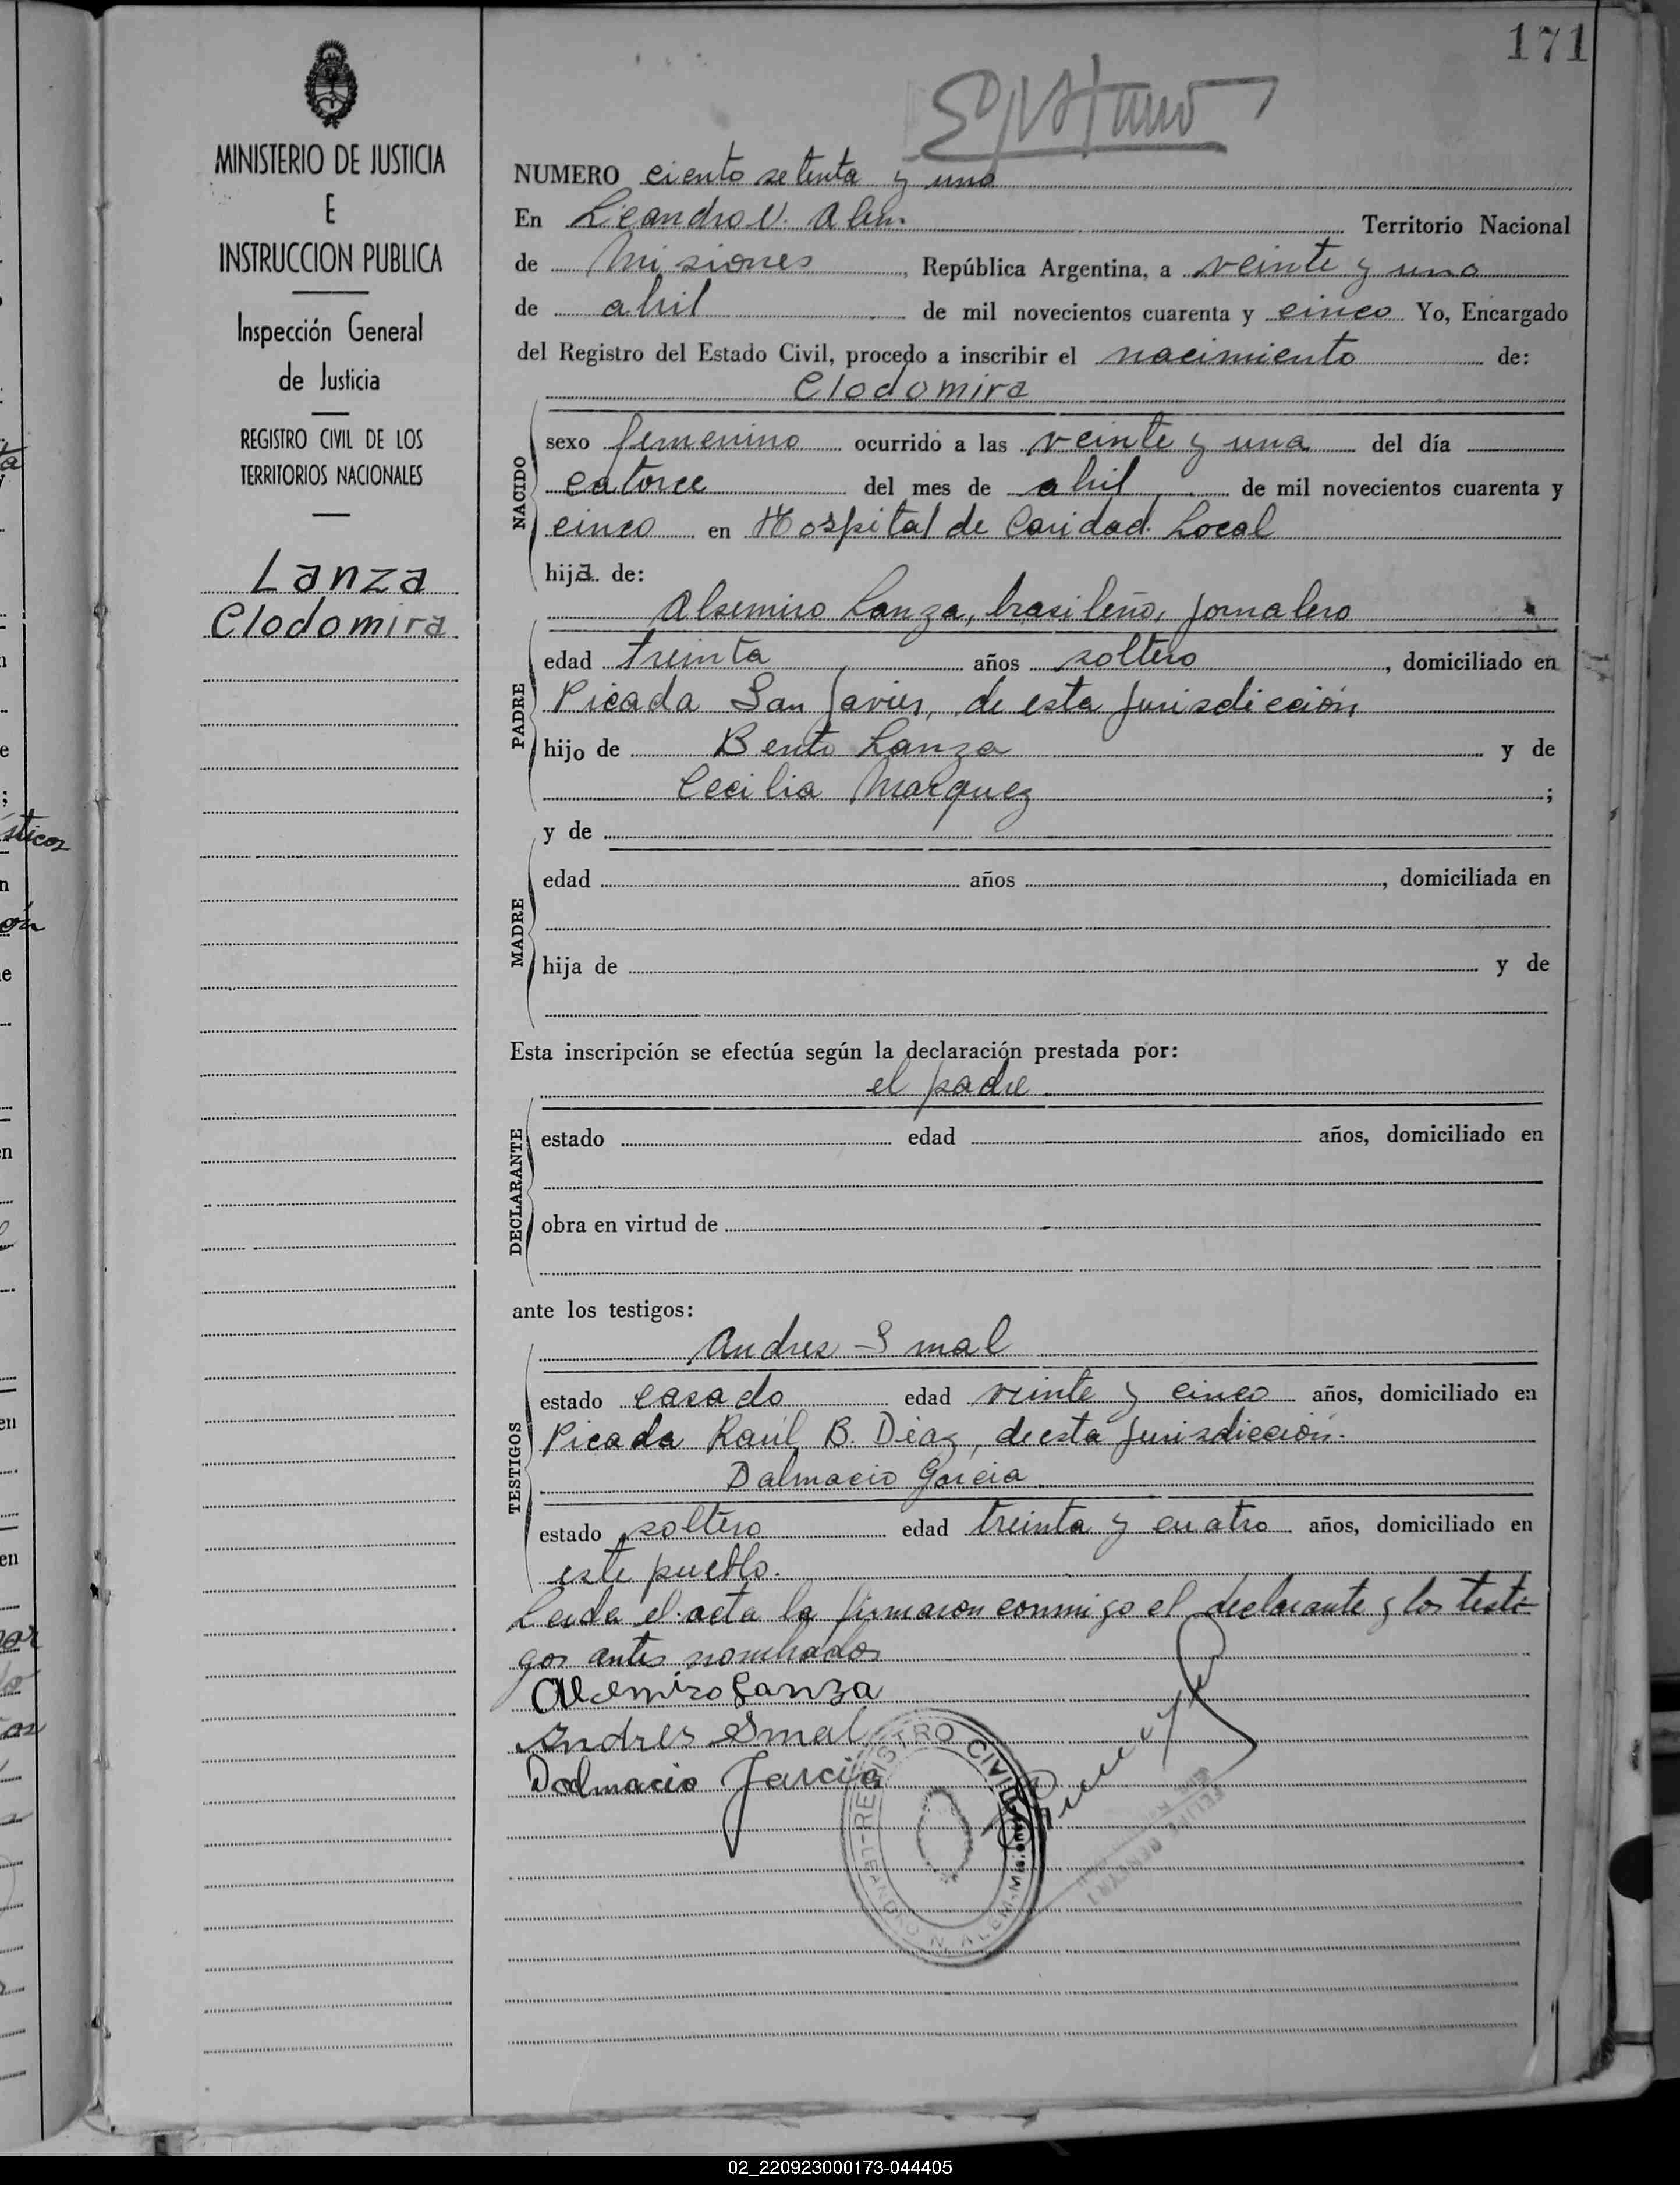 171
MINISTERIO DE JUSTICIA
E
INSTRUCCION PUBLICA
Inspección General
de Justicia
REGISTRO CIVIL DE LOS
TERRITORIOS NACIONALES
Lanza
Clodomira
NUMERO ciento setenta y uno
En Leandro N. Alem. Territorio Nacional
de Misiones, República Argentina, a veinte y uno
de abril de mil novecientos cuarenta y cinco Yo, Encargado
del Registro del Estado Civil, procedo a inscribir el nacimiento de:
Clodomira
NACIDO
sexo femenino ocurrido a las veinte y una del día
catorce del mes de abril de mil novecientos cuarenta y
cinco en Hospital de Caridad Local
hija de:
Alsemiro Lanza, brasileño, jornalero
PADRE
edad treinta años soltero, domiciliado en
Picada San Javier, de esta jurisdicción
hijo de Bento Lanza y de
Cecilia Marquez;
MADRE
y de
edad años, domiciliada en
hija de y de
Esta inscripción se efectúa según la declaración prestada por:
el padre
DECLARANTE
estado edad años, domiciliado en
obra en virtud de
ante los testigos:
Andres Smal
TESTIGOS
estado casado edad veinte y cinco años, domiciliado en
Picada Raúl B. Diaz, de esta jurisdicción.
Dalmacio Garcia
estado soltero edad treinta y cuatro años, domiciliado en
este pueblo.
Leida el acta la firmaron conmigo el declarante y los testi-
gos antes nombrados
Alsemiro Lanza
Andres Smal
Dalmacio Garcia
REGISTRO CIVIL
LEANDRO N. ALEM-Misiones
02_220923000173-044405